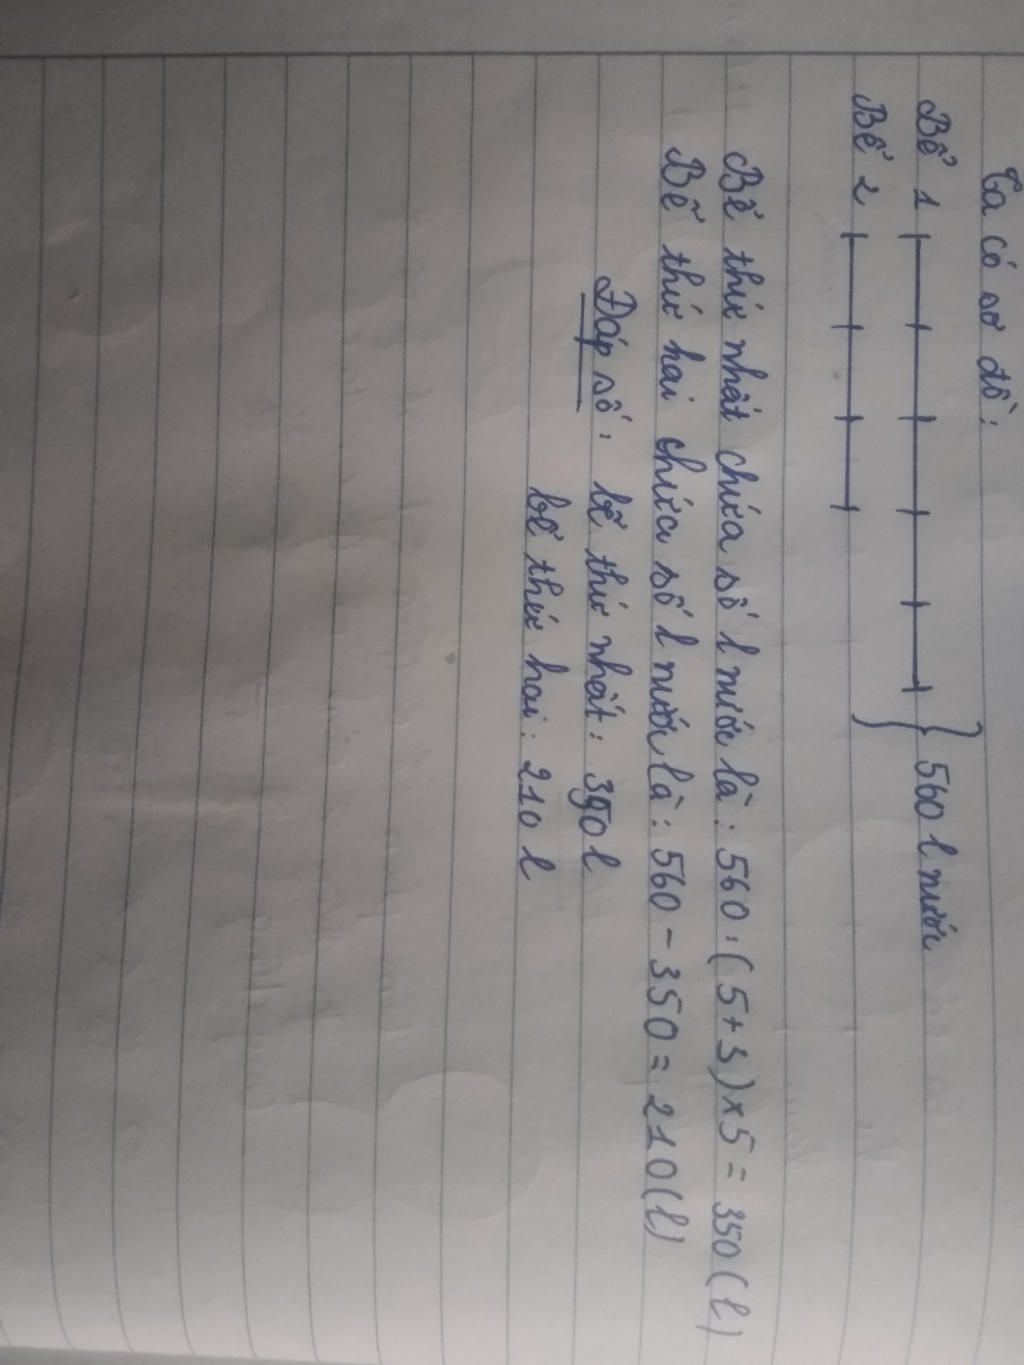 Ta có sơ đồ:
Bể 1 560 l nước
Bể 2
Bể thứ nhất chứa số l nước là: 560 : (5+3) x 5 = 350 (l)
Bể thứ hai chứa số l nước là: 560 - 350 = 210 (l)
Đáp số: bể thứ nhất: 350 l
bể thứ hai: 210 l